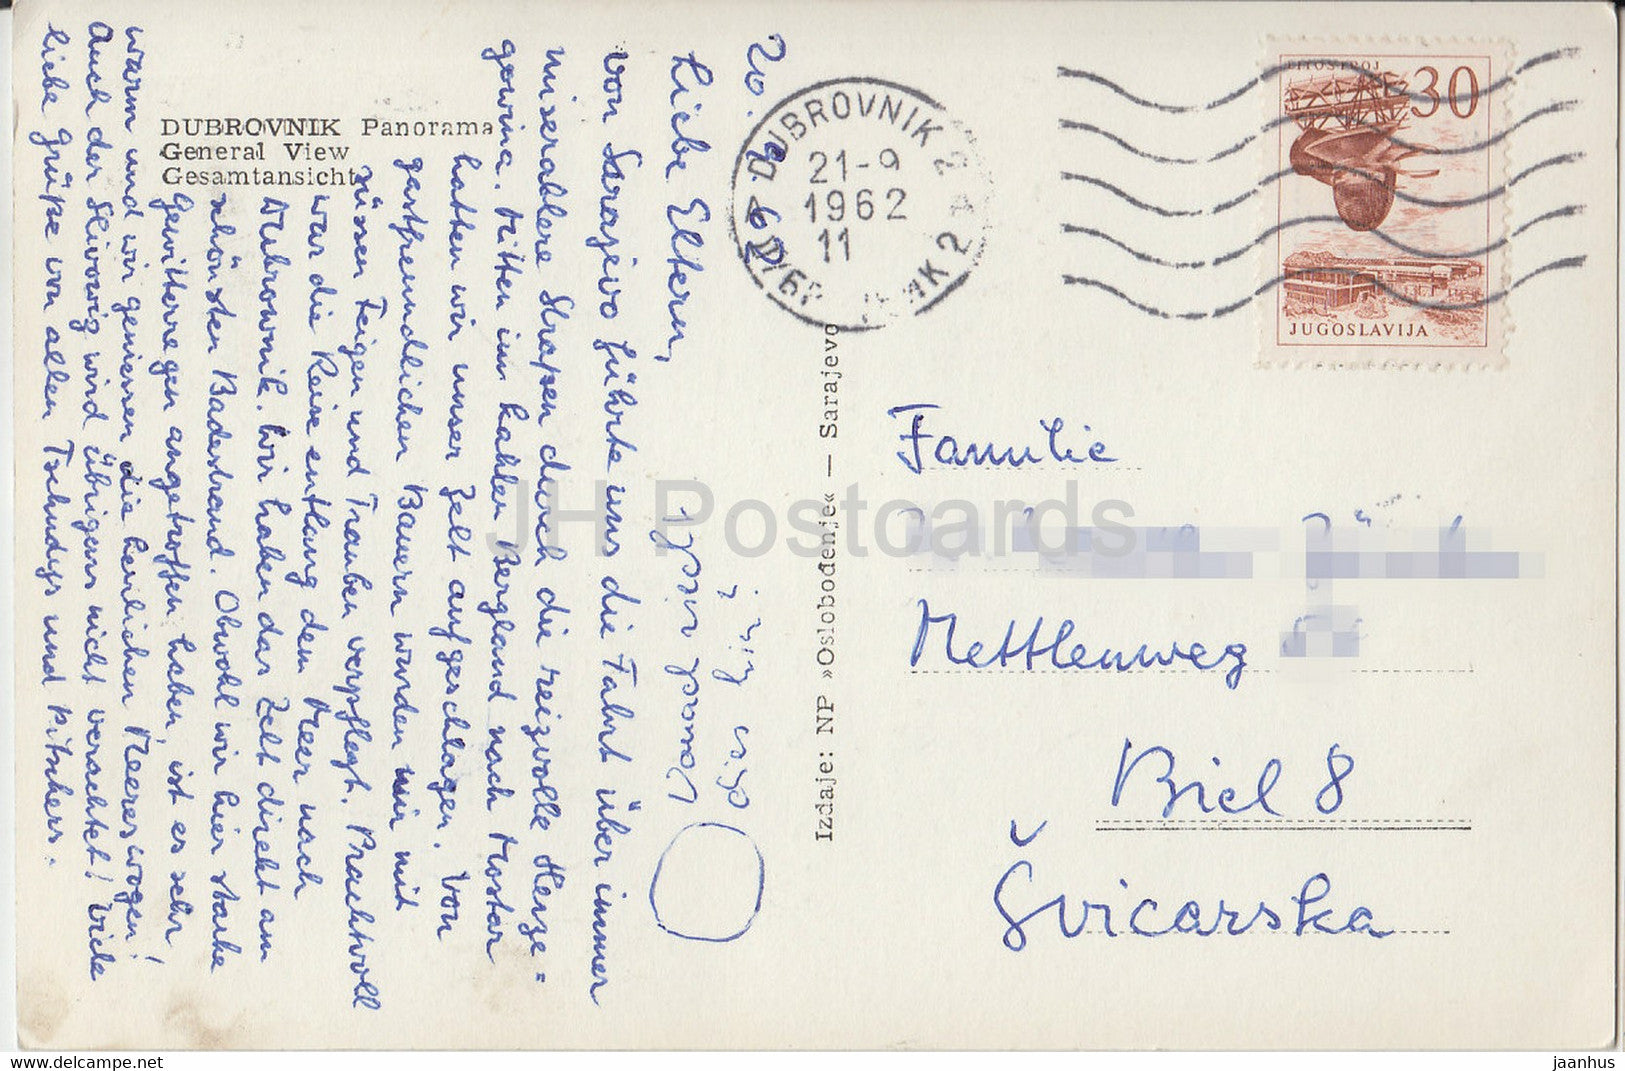 20. 9. 62
Liebe Eltern,
von Sarajevo führte uns die Fahrt über immer
miserablere Straßen durch die reizvolle Herze=
gowina. Mitten im kahlen Bergland nach Mostar
hatten wir unser Zelt aufgeschlagen. Von
gastfreundlichen Bauern wurden wir mit
süssen Feigen und Trauben verpflegt. Prachtvoll
war die Reise entlang dem Meer nach
Dubrownik. Wir haben das Zelt direkt am
schönsten Badestrand. Obwohl wir hier starke
Gewitterregen angetroffen haben, ist es sehr
warm und wir geniessen die herrlichen Meereswogen!
Auch der Slivowiz wird übrigens nicht verachtet! Viele
liebe Grüße von allen Tschudys und Pitschers.
DUBROVNIK Panorama
General View
Gesamtansicht
Izdaje: NP »Oslobođenje« — Sarajevo
DUBROVNIK 2
21-9
1962
11
LITOSTROJ
30
JUGOSLAVIJA
Familie
Mettlenweg
Biel 8
Švicarska
JH Postcards
https://www.delcampe.net
jaanhus